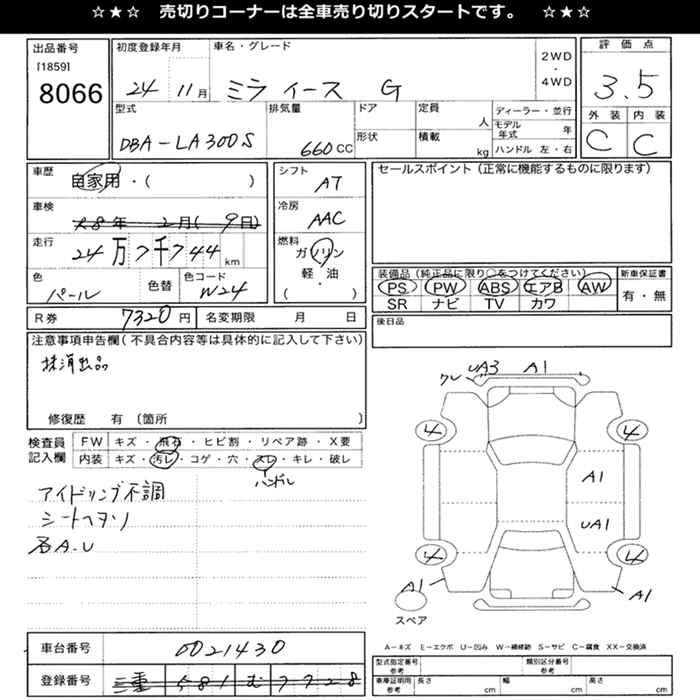 ☆★☆ 売切りコーナーは全車売り切りスタートです。 ☆★☆
出品番号
[1859]
8066
初度登録年月
24 11月
車名・グレード
ミライース G
2WD
・
4WD
評価点
3.5
外装 内装
C C
型式
DBA-LA300S
排気量
660CC
ドア
形状
定員
人
積載
kg
ディーラー・並行
モデル年式 年
ハンドル 左・右
車歴
自家用・( )
車検
年 2月(9日)
走行
24万7千744km
色
パール
色替
色コード
W24
シフト
AT
冷房
AAC
燃料
ガソリン
軽・油
( )
セールスポイント(正常に機能するものに限ります)
装備品(純正品に限り○をつけてください)
PS PW ABS エアB AW
SR ナビ TV カワ
新車保証書
有・無
後日品
R券 7320円 名変期限 月 日
注意事項申告欄(不具合内容等は具体的に記入して下さい)
抹消出品
修復歴 有 〔箇所 〕
検査員
記入欄
FW キズ・飛石・ヒビ割・リペア跡・X要
内装 キズ・汚レ・コゲ・穴・スレ・キレ・破レ
ハンドル
アイドリング不調
シートヘタリ
各A.U
ワレ UA3 A1
4 4
A1
UA1
4 4
A1 A1
スペア
A-キズ E-エクボ U-凹み W-補修跡 S-サビ C-腐食 XX-交換済
車台番号 0021430
登録番号 三重 581 む 7728
型式指定番号
参考
類別区分番号
参考
車庫証明用
参考
長さ cm 幅 cm 高さ cm